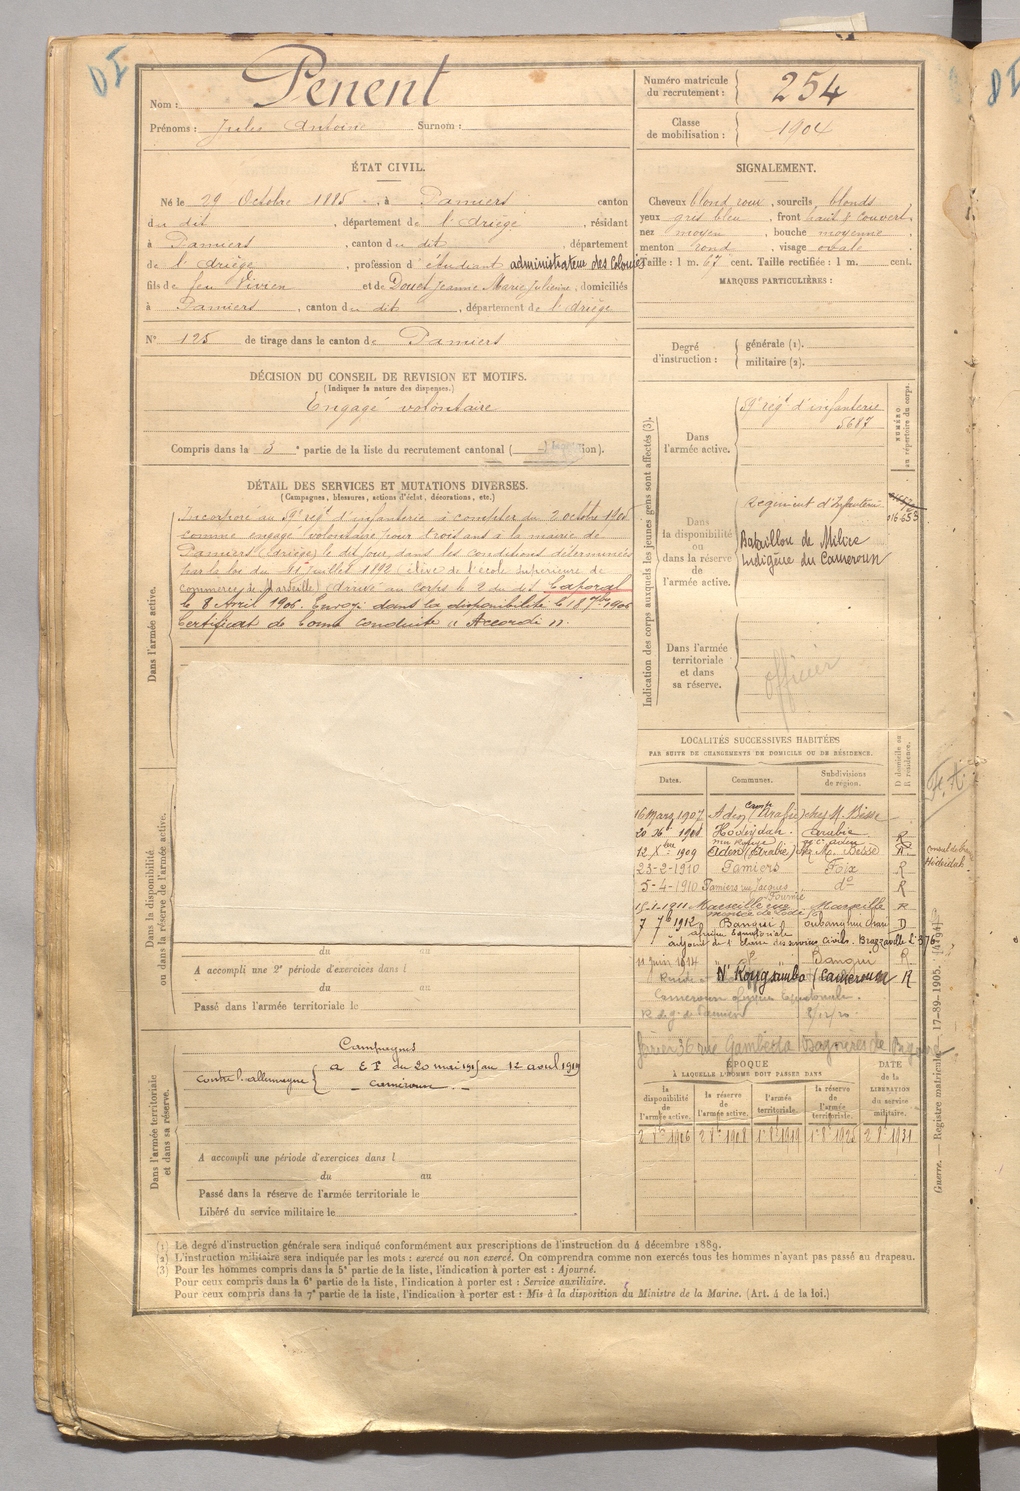 Nom : Penent
Prénoms : Jules Antoine Surnom :
Numéro matricule du recrutement : 254
Classe de mobilisation : 1904
ÉTAT CIVIL.
Né le 29 Octobre 1885, à Pamiers canton
du dit, département de l'Ariège, résidant
à Pamiers, canton du dit, département
de l'Ariège, profession d'étudiant administrateur des Colonies
fils de feu Vivien et de Doucet Jeanne Marie Julienne, domiciliés
à Pamiers, canton du dit, département de l'Ariège
N° 125 de tirage dans le canton de Pamiers
SIGNALEMENT.
Cheveux blond roux, sourcils blonds
yeux gris bleu, front haut & couvert
nez moyen, bouche moyenne
menton rond, visage ovale
Taille : 1 m. 67 cent. Taille rectifiée : 1 m. cent.
MARQUES PARTICULIÈRES :
Degré d'instruction : générale (1).
militaire (2).
DÉCISION DU CONSEIL DE REVISION ET MOTIFS.
(Indiquer la nature des dispenses.)
Engagé volontaire
Compris dans la 3e partie de la liste du recrutement cantonal
DÉTAIL DES SERVICES ET MUTATIONS DIVERSES.
(Campagnes, blessures, actions d'éclat, décorations, etc.)
Dans l'armée active.
Incorporé au 59e régt d'infanterie à compter du 2 octobre 1905
comme engagé volontaire pour trois ans à la mairie de
Pamiers (Ariège) le dit jour, dans les conditions déterminées
par la loi du 11 Juillet 1892 (élève de l'école supérieure de
commerce de Marseille) arrivé au corps le 2 du dit. Caporal
le 8 Avril 1906. Envoyé dans la disponibilité le 18 7bre 1906
Certificat de bonne conduite « Accordé ».
Dans la disponibilité ou dans la réserve de l'armée active.
du au
A accompli une 2e période d'exercices dans l
du au
Passé dans l'armée territoriale le
Dans l'armée territoriale et dans sa réserve.
Campagnes
contre l'allemagne { a E P du 20 mai 1915 au 12 avril 1919
Cameroun
A accompli une période d'exercices dans l
du au
Passé dans la réserve de l'armée territoriale le
Libéré du service militaire le
Indication des corps auxquels les jeunes gens sont affectés (3).
NUMÉRO au répertoire du corps.
Dans l'armée active.
59e régt d'infanterie
5687
Dans la disponibilité ou dans la réserve de l'armée active.
Régiment d'Infanterie
Bataillon de Milice
Indigène du Cameroun
Dans l'armée territoriale et dans sa réserve.
officier
LOCALITÉS SUCCESSIVES HABITÉES
PAR SUITE DE CHANGEMENTS DE DOMICILE OU DE RÉSIDENCE.
Dates. Communes. Subdivisions de région. D domicile ou R résidence.
16 Mars 1907 Aden Camp (Arabie) chez M. Bisse
Hodeydah. Arabie R
12 Xbre 1909 Aden (Arabie) chez M. Beisse R
23-2-1910 Pamiers Foix R
5-4-1910 Pamiers rue Jacques Fournié do R
15-1-1911 Marseille Marseille R
7 7bre 1912 Bangui Oubanghui Chari D
afrique Equatoriale
adjoint de 1e classe des services civils. Brazzaville
11 juin 1914 Bangui R
N'Kongsamba (Cameroun) R
Cameroun afrique Equatoriale.
36 rue Gambetta Bagnères de
ÉPOQUE
À LAQUELLE L'HOMME DOIT PASSER DANS
DATE de la LIBÉRATION du service militaire.
la disponibilité de l'armée active. la réserve de l'armée active. l'armée territoriale. la réserve de l'armée territoriale.
Guerre. — Registre matricule. — 17-89-1905. [4794]
(1) Le degré d'instruction générale sera indiqué conformément aux prescriptions de l'instruction du 4 décembre 1889.
(2) L'instruction militaire sera indiquée par les mots : exercé ou non exercé. On comprendra comme non exercés tous les hommes n'ayant pas passé au drapeau.
(3) Pour les hommes compris dans la 5e partie de la liste, l'indication à porter est : Ajourné.
Pour ceux compris dans la 6e partie de la liste, l'indication à porter est : Service auxiliaire.
Pour ceux compris dans la 7e partie de la liste, l'indication à porter est : Mis à la disposition du Ministre de la Marine. (Art. 4 de la loi.)